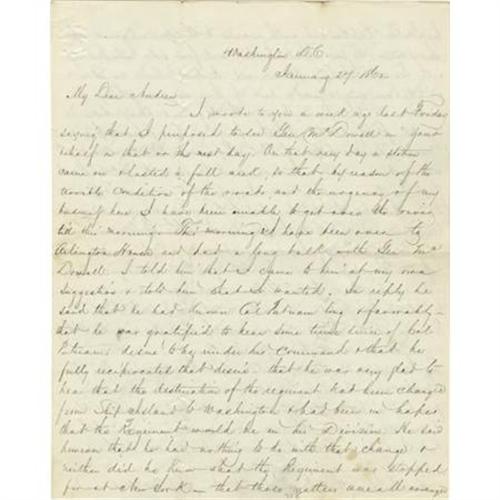 Washington D.C.
January 27, 1862
My Dear Andrew
I wrote to you a week ago last Friday
saying that I proposed to see Gen McDowell in your
behalf on that or the next day. On that very day a storm
came on & lasted a full week, so that by reason of the
terrible condition of the roads and the urgency of my
business here I have been unable to get over the river
till this morning. This morning I have been over to
Arlington House and had a long talk with Gen Mc
Dowell. I told him that I came to him at my own
suggestion & told him what I wanted. In reply he
said that he had known Col Putnam long & favorably –
that he was gratified to hear some time since of Col
Putnam's desire to be under his command & that he
fully reciprocated that desire – that he was very glad to
hear that the destination of the regiment had been changed
from Ship Island to Washington & had been in hopes
that the Regiment would be in his Division. He said
however that he had nothing to do with that change &
neither did he know that the Regiment was stopped
for at New York – that those matters were all arranged